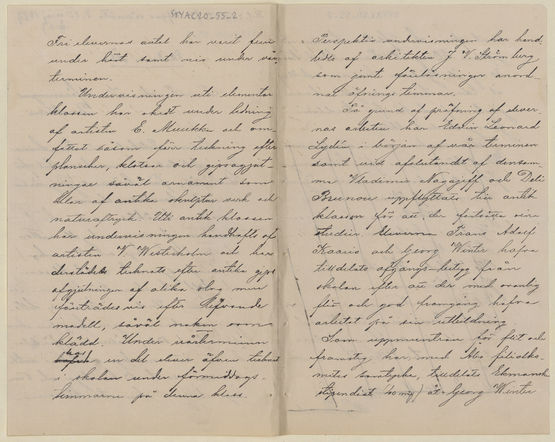 SYAC20-55-2
Fri elevernas antal har varit fem
under höst samt nio under vår
terminen.
Undervisningen uti elementar
klassen har skett under ledning
af artisten E. Muukka och om
fattat såsom förr teckning efter
planscher, klotsar och gipsafgjut-
ningar såväl ornament som
delar af antika skulptur verk och
naturafbryt. Uti antik klassen
har undervisningen handhafts af
artisten V. Westerholm och har
derstädes tecknats efter antika gips
afgjutningar af olika slag men
företrädesvis efter lefvande
modell, såväl naken som
klädd. Under vårterminen
en del elever äfven tecknat
i skolan under förmiddags
timmarne på denna klass.
Perspektiv undervisningen har hand
ledts af arkitekten J. V. Strömberg
som jemte föreläsningar anord-
nat öfnings timmar.
På grund af pröfning af elever
nas arbeten har Edvin Leonard
Lydén i början af vår terminen
samt vid afslutandet af densam
ma Wladimir och
uppflyttats till antik
klassen för att der fortsätta sina
studier. Eleverna Frans Adolf
Kaario och Georg Winter hafva
tilldelats afgångs-betyg från
skolan efter att der med synnerlig
flit och god framgång hafva
arbetat på sin utbildning.
Som uppmuntran för flit och
framsteg har med
samtycke, tilldelats Ekmanska
stipendiet åt Georg Winter